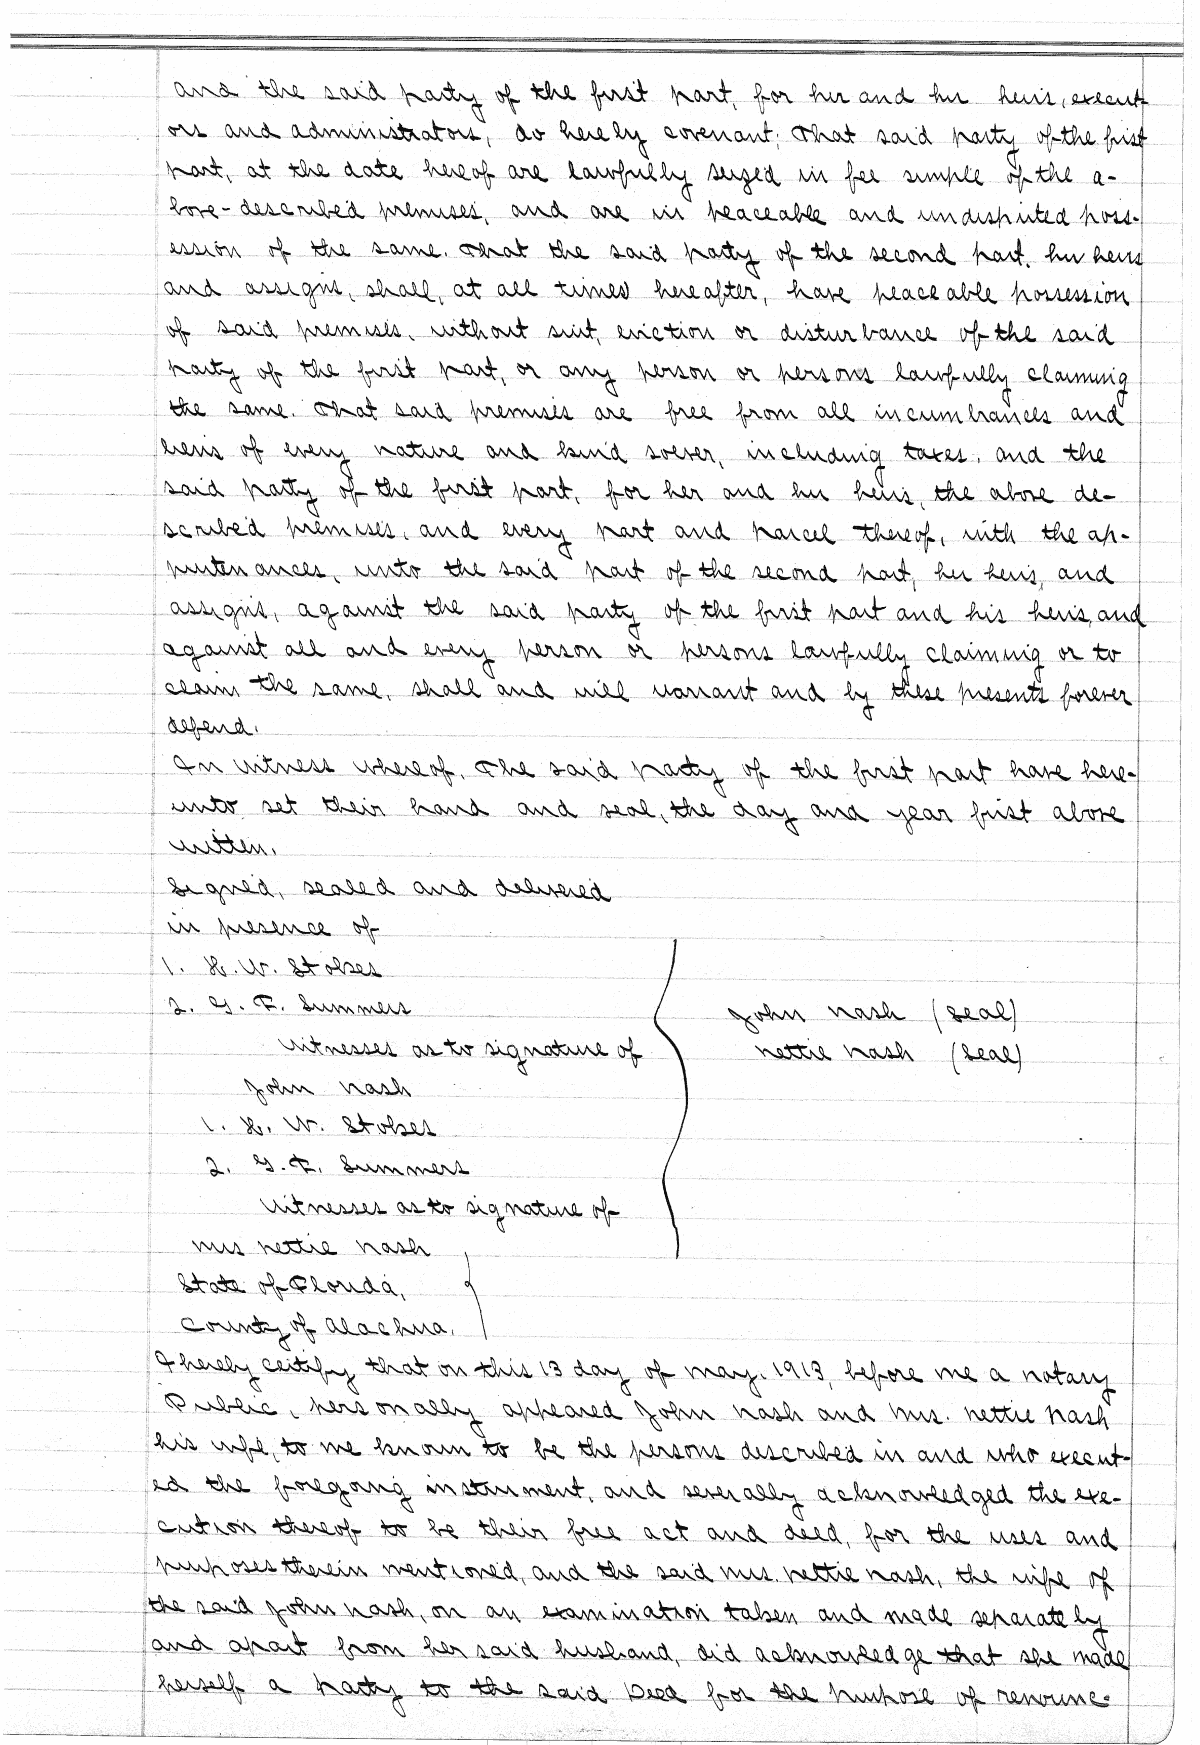 and the said party of the first part, for her and her heirs, execut-
ors and administrators, do hereby covenant; That said party of the first
part, at the date hereof are lawfully seized in fee simple of the a-
bove-described premises, and are in peaceable and undisputed poss-
ession of the same. That the said party of the second part, her heirs
and assigns, shall, at all times hereafter, have peaceable possession
of said premises, without suit, eviction or disturbance of the said
party of the first part, or any person or persons lawfully claiming
the same. That said premises are free from all incumbrances and
liens of every nature and kind soever, including taxes. and the
said party of the first part, for her and her heirs, the above de-
scribed premises, and every part and parcel thereof, with the ap-
purtenances, unto the said part of the second part, her heirs, and
assigns, against the said party of the first part and his heirs, and
against all and every person or persons lawfully claiming or to
claim the same, shall and will warrant and by these presents forever
defend.
In witness whereof, The said party of the first part have here-
unto set their hand and seal, the day and year first above
written.
Signed, sealed and delivered
in presence of
1. H. W. Stokes
2. G. F. Summers
John Nash (Seal)
Witnesses as to signature of
Nettie Nash (Seal)
John Nash
1. H. W. Stokes
2. G. F. Summers
Witnesses as to signature of
Mrs Nettie Nash
State of Florida,
County of Alachua.
I hereby certify that on this 13 day of May, 1913, before me a notary
Public, personally appeared John Nash and Mrs. Nettie Nash
his wife, to me known to be the persons described in and who execut-
ed the foregoing instrument, and severally acknowledged the exe-
cution thereof to be their free act and deed, for the uses and
purposes therein mentioned, and the said Mrs. Nettie Nash, the wife of
the said John Nash, on an examination taken and made separately
and apart from her said husband, did acknowledge that she made
herself a party to the said Deed for the purpose of renounc-